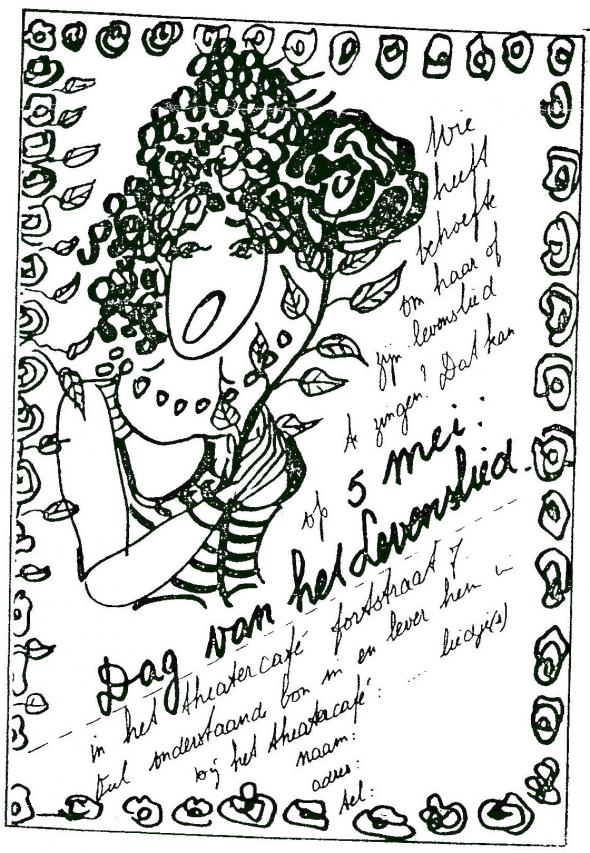 Wie
heeft
behoefte
om haar of
zijn levenslied
te zingen? Dat kan
op 5 mei:
Dag van het Levenslied.
in het theatercafé fortstraat 7
Vul onderstaande bon in en lever hem in
bij het theatercafé: .... liedje(s)
naam:
adres:
tel: